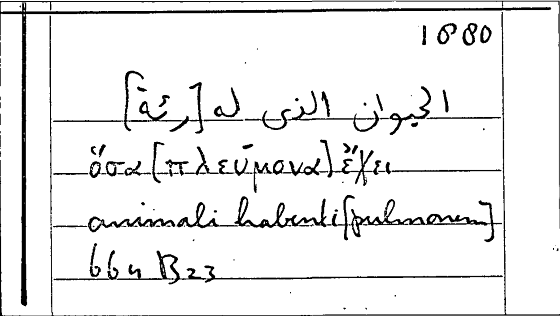 1880
الحيوان الذى له [رئة]
ὅσα [πλεύμονα] ἔχει
animali habenti [pulmonem]
664 B23